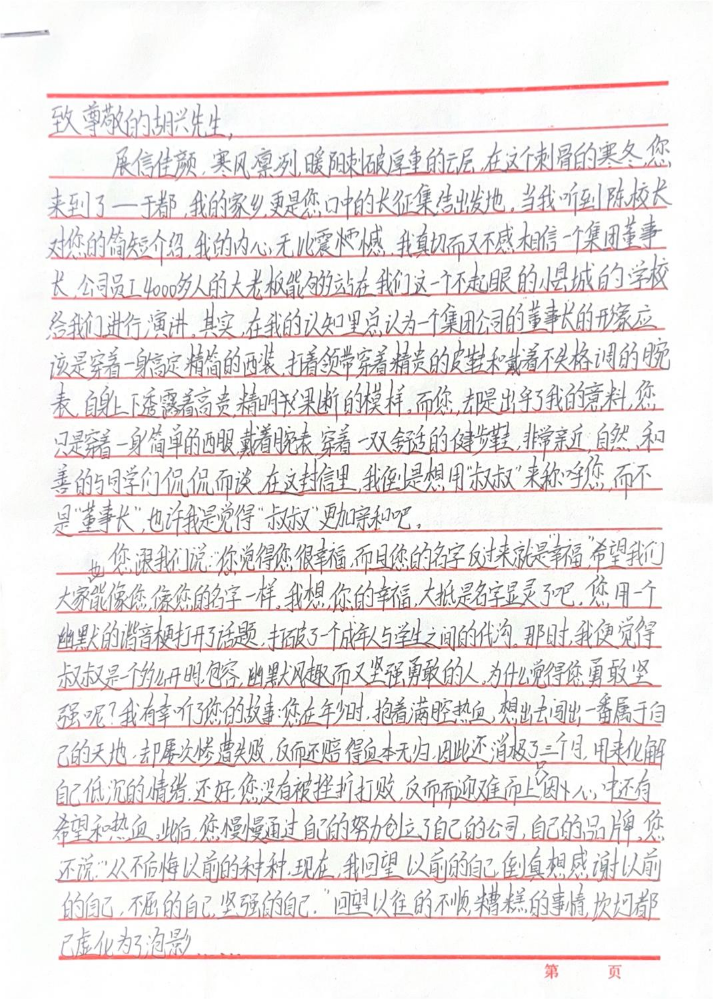 致尊敬的胡兴先生,
展信佳颜,寒风凛列,暖阳刺破厚重的云层,在这个刺骨的寒冬,您
来到了——于都,我的家乡,更是您口中的长征集结出发地,当我听到陈校长
对您的简短介绍,我的内心无比震憾,我真切而又不感相信一个集团董事
长,公司员工4000多人的大老板能够站在我们这一个不起眼的小县城的学校
给我们进行演讲。其实,在我的认知里总认为一个集团公司的董事长的形象应
该是穿着一身高定精简的西装,打着领带穿着精贵的皮鞋和戴着不失格调的腕
表,自身上下透露着高贵,精明又果断的模样。而您,却是出乎了我的意料,您
只是穿着一身简单的西服,戴着腕表,穿着一双舒适的健步鞋,非常亲近,自然,和
善的与同学们侃侃而谈,在这封信里,我倒是想用“叔叔”来称呼您,而不
是“董事长”,也许我是觉得“叔叔”更加亲和吧。
您跟我们说:“你觉得您很幸福,而且您的名字反过来就是“幸福”希望我们
大家也能像您,像您的名字一样。我想,你的幸福,大抵是名字显灵了吧,您用一个
幽默的谐音梗打开了话题,打破了一个成年人与学生之间的代沟。那日时,我便觉得
叔叔是个多么开明,包容,幽默风趣而又坚强勇敢的人,为什么觉得您勇敢坚
强呢?我有幸听了您的故事:您在年少时,抱着满腔热血,想出去闯出一番属于自
己的天地,却屡次惨遭失败,反而还赔得血本无归,因此还消极了三个月,用来化解
自己低沉的情绪,还好,您没有被挫折打败,反而而迎难而上,只因心中还有
希望和热血,此后,您慢慢通过自己的努力创立了自己的公司,自己的品牌,您
还说:“从不后悔以前的种种,现在,我回望以前的自己,倒真想感谢以前
的自己,不屈的自己,坚强的自己。”回望以往的不顺,糟糕的事情,坎坷都
已虚化为了泡影......
第 页